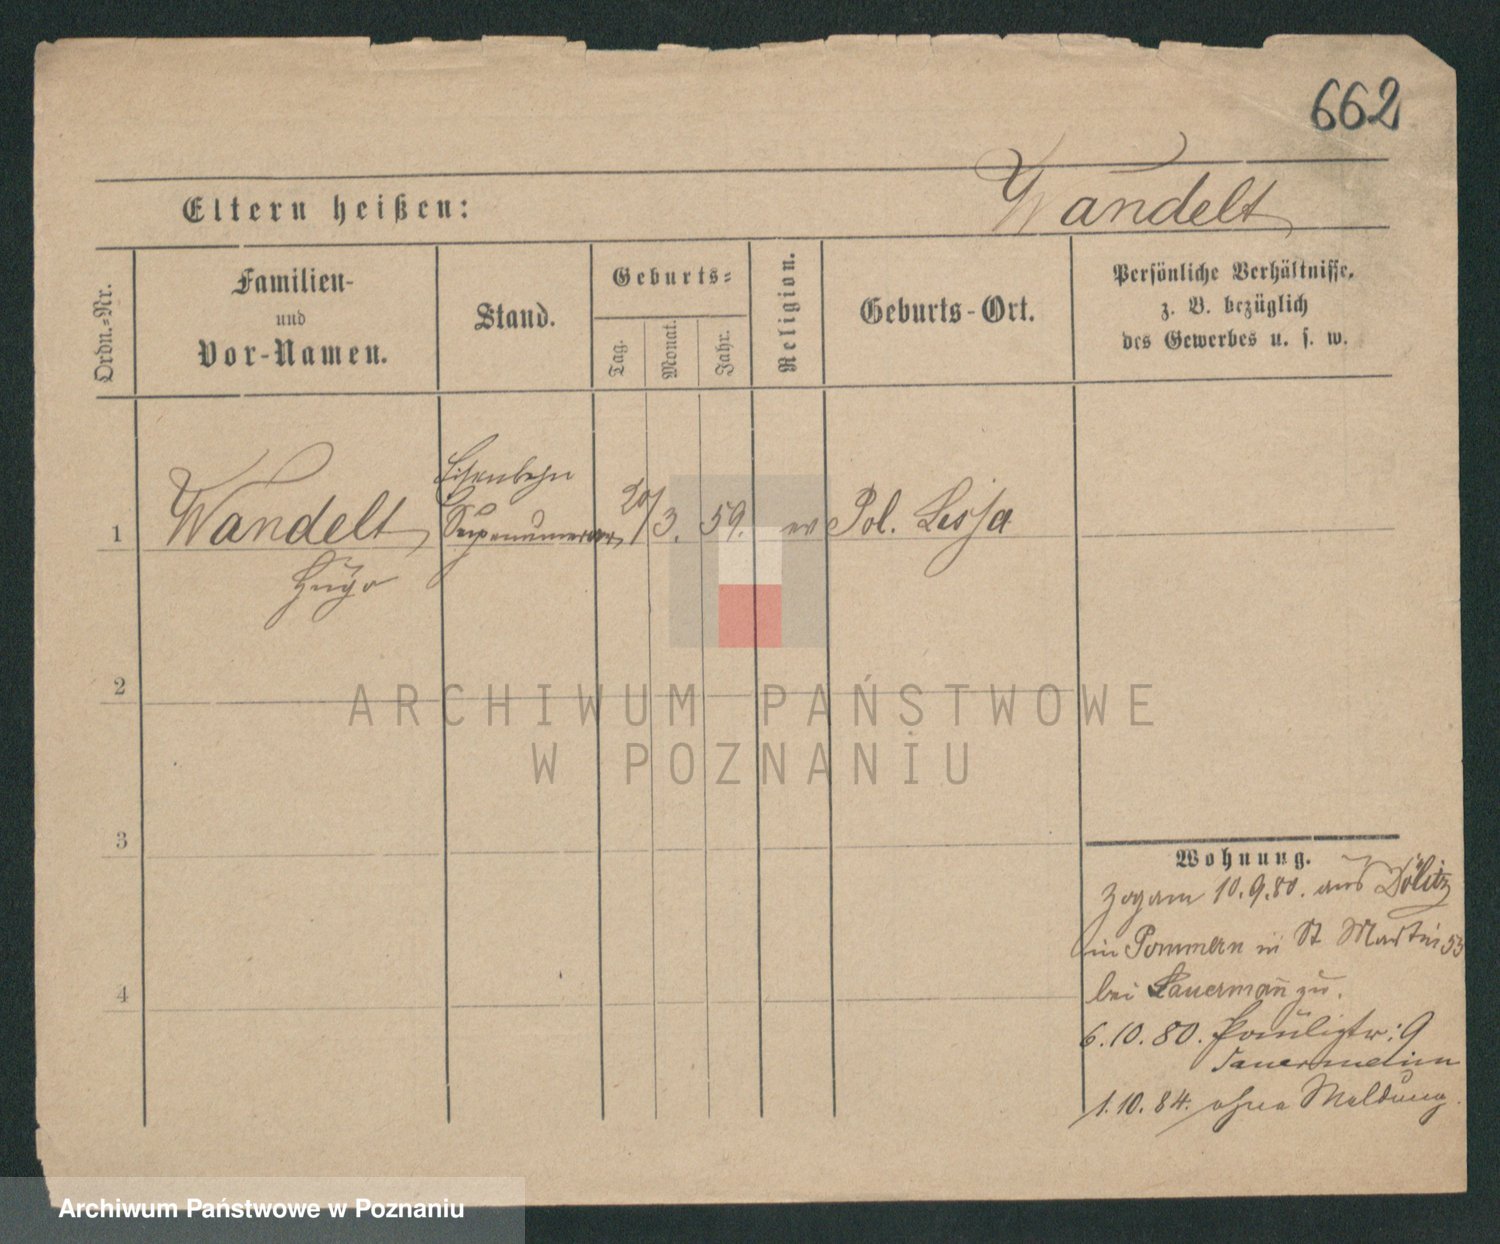 662
Eltern heißen:
Wandelt
Ordn.-Nr.
Familien-
und
Vor-Namen.
Stand.
Geburts-
Tag.
Monat.
Jahr.
Religion.
Geburts-Ort.
Persönliche Verhältnisse,
z. B. bezüglich
des Gewerbes u. s. w.
1
Wandelt
Hugo
Eisenbahn
Supernumerar
20/3. 59.
ev
Pol. Lissa
2
ARCHIWUM PAŃSTWOWE
W POZNANIU
3
4
Wohnung.
Zogam 10.9.80. aus Dölitz
in Pommern in St Martin 53
bei Lauermañ zu.
6.10.80. Paulistr: 9
1.10.84. ohne Meldung.
Archiwum Państwowe w Poznaniu